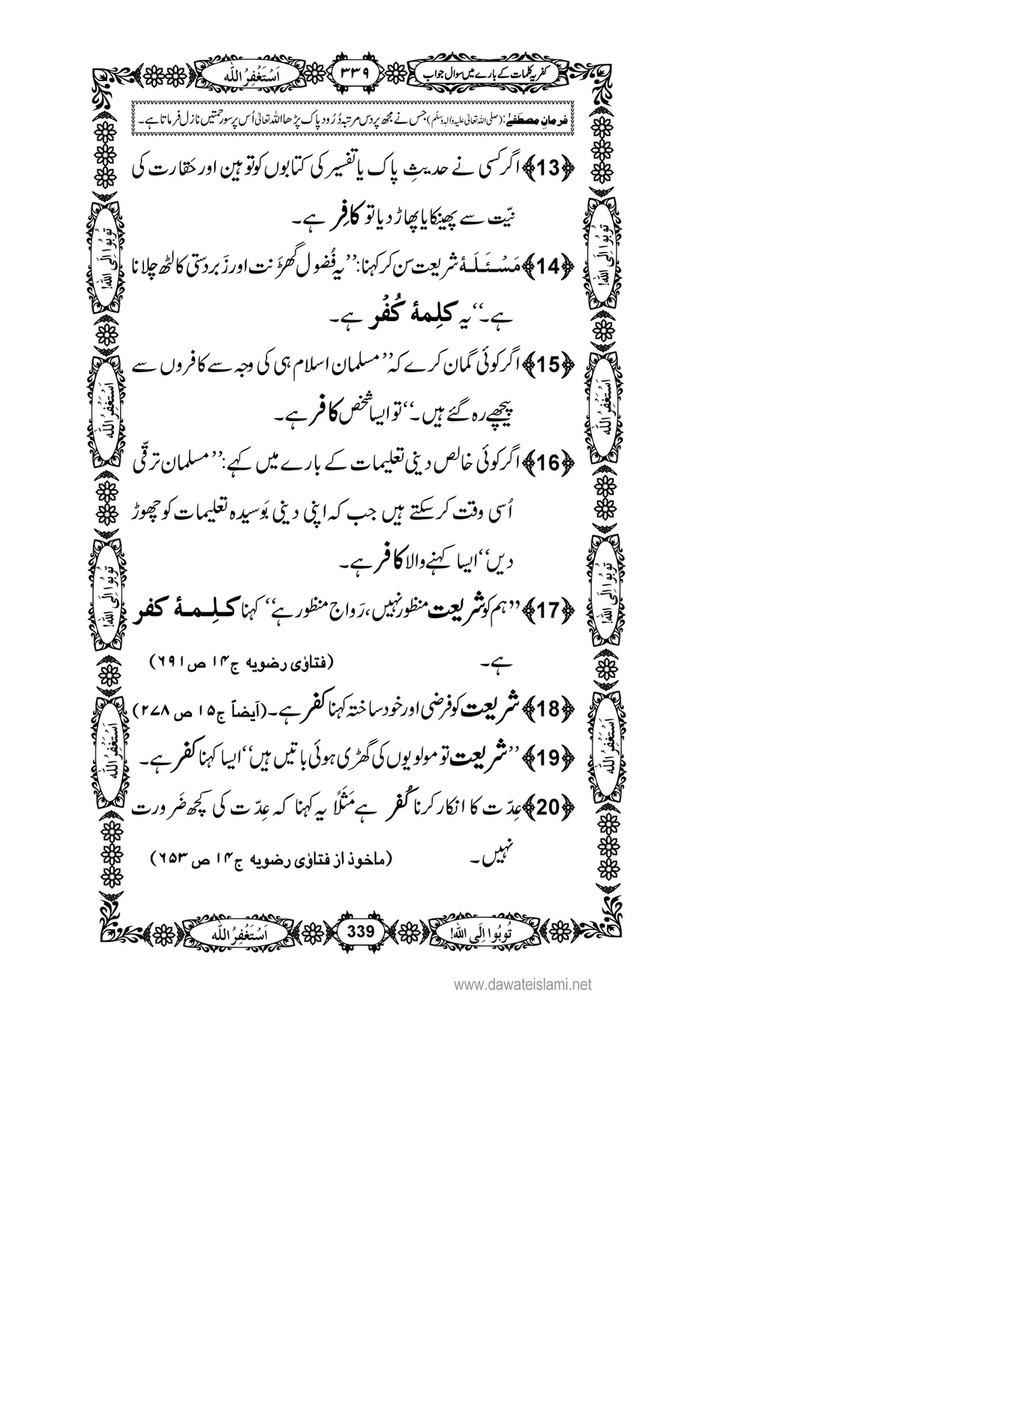 کفریہ کلمات کے بارے میں سوال جواب
۳۳۹
اَسْتَغْفِرُ اللّٰه
فرمانِ مصطفٰے: (صلی اللہ تعالیٰ علیہ والہ وسلّم) جس نے مجھ پر دس مرتبہ دُرُود پاک پڑھا اللہ تعالیٰ اُس پر سو رحمتیں نازل فرماتا ہے۔
﴿13﴾ اگر کسی نے حدیثِ پاک یا تفسیر کی کتابوں کو توہین اور حَقارت کی
نیّت سے پھینکا یا پھاڑ دیا تو کافِر ہے۔
﴿14﴾ مَسْئَلَۂ شریعت سن کر کہنا: ’’یہ فُضول گھڑنت اور زَبردستی کا لٹھ چلانا
ہے۔‘‘ یہ کلِمۂ کُفْر ہے۔
﴿15﴾ اگر کوئی گمان کرے کہ ’’مسلمان اسلام ہی کی وجہ سے کافروں سے
پیچھے رہ گئے ہیں۔‘‘ تو ایسا شخص کافر ہے۔
﴿16﴾ اگر کوئی خالص دینی تعلیمات کے بارے میں کہے: ’’مسلمان ترقّی
اُسی وقت کر سکتے ہیں جب کہ اپنی دینی بَوسیدہ تعلیمات کو چھوڑ
دیں‘‘ ایسا کہنے والا کافر ہے۔
﴿17﴾ ’’ہم کو شریعت منظور نہیں، رَواج منظور ہے‘‘ کہنا کلِمۂ کفر
ہے۔ (فتاوٰی رضویہ ج ۱۴ ص ۶۹۱)
﴿18﴾ شریعت کو فرضی اور خود ساختہ کہنا کفر ہے۔ (اَیضاً ج ۱۵ ص ۲۷۸)
﴿19﴾ ’’شریعت تو مولویوں کی گھڑی ہوئی باتیں ہیں‘‘ ایسا کہنا کفر ہے۔
﴿20﴾ عِدّت کا انکار کرنا کُفر ہے مَثَلاً یہ کہنا کہ عِدّت کی کچھ ضَرورت
نہیں۔ (ماخوذ از فتاوٰی رضویہ ج ۱۴ ص ۶۵۳)
تُوبُوا اِلَی اللّٰه!
اَسْتَغْفِرُ اللّٰه
تُوبُوا اِلَی اللّٰه!
اَسْتَغْفِرُ اللّٰه
تُوبُوا اِلَی اللّٰه!
اَسْتَغْفِرُ اللّٰه
تُوبُوا اِلَی اللّٰه!
اَسْتَغْفِرُ اللّٰه
تُوبُوا اِلَی اللّٰه!
339
اَسْتَغْفِرُ اللّٰه
www.dawateislami.net